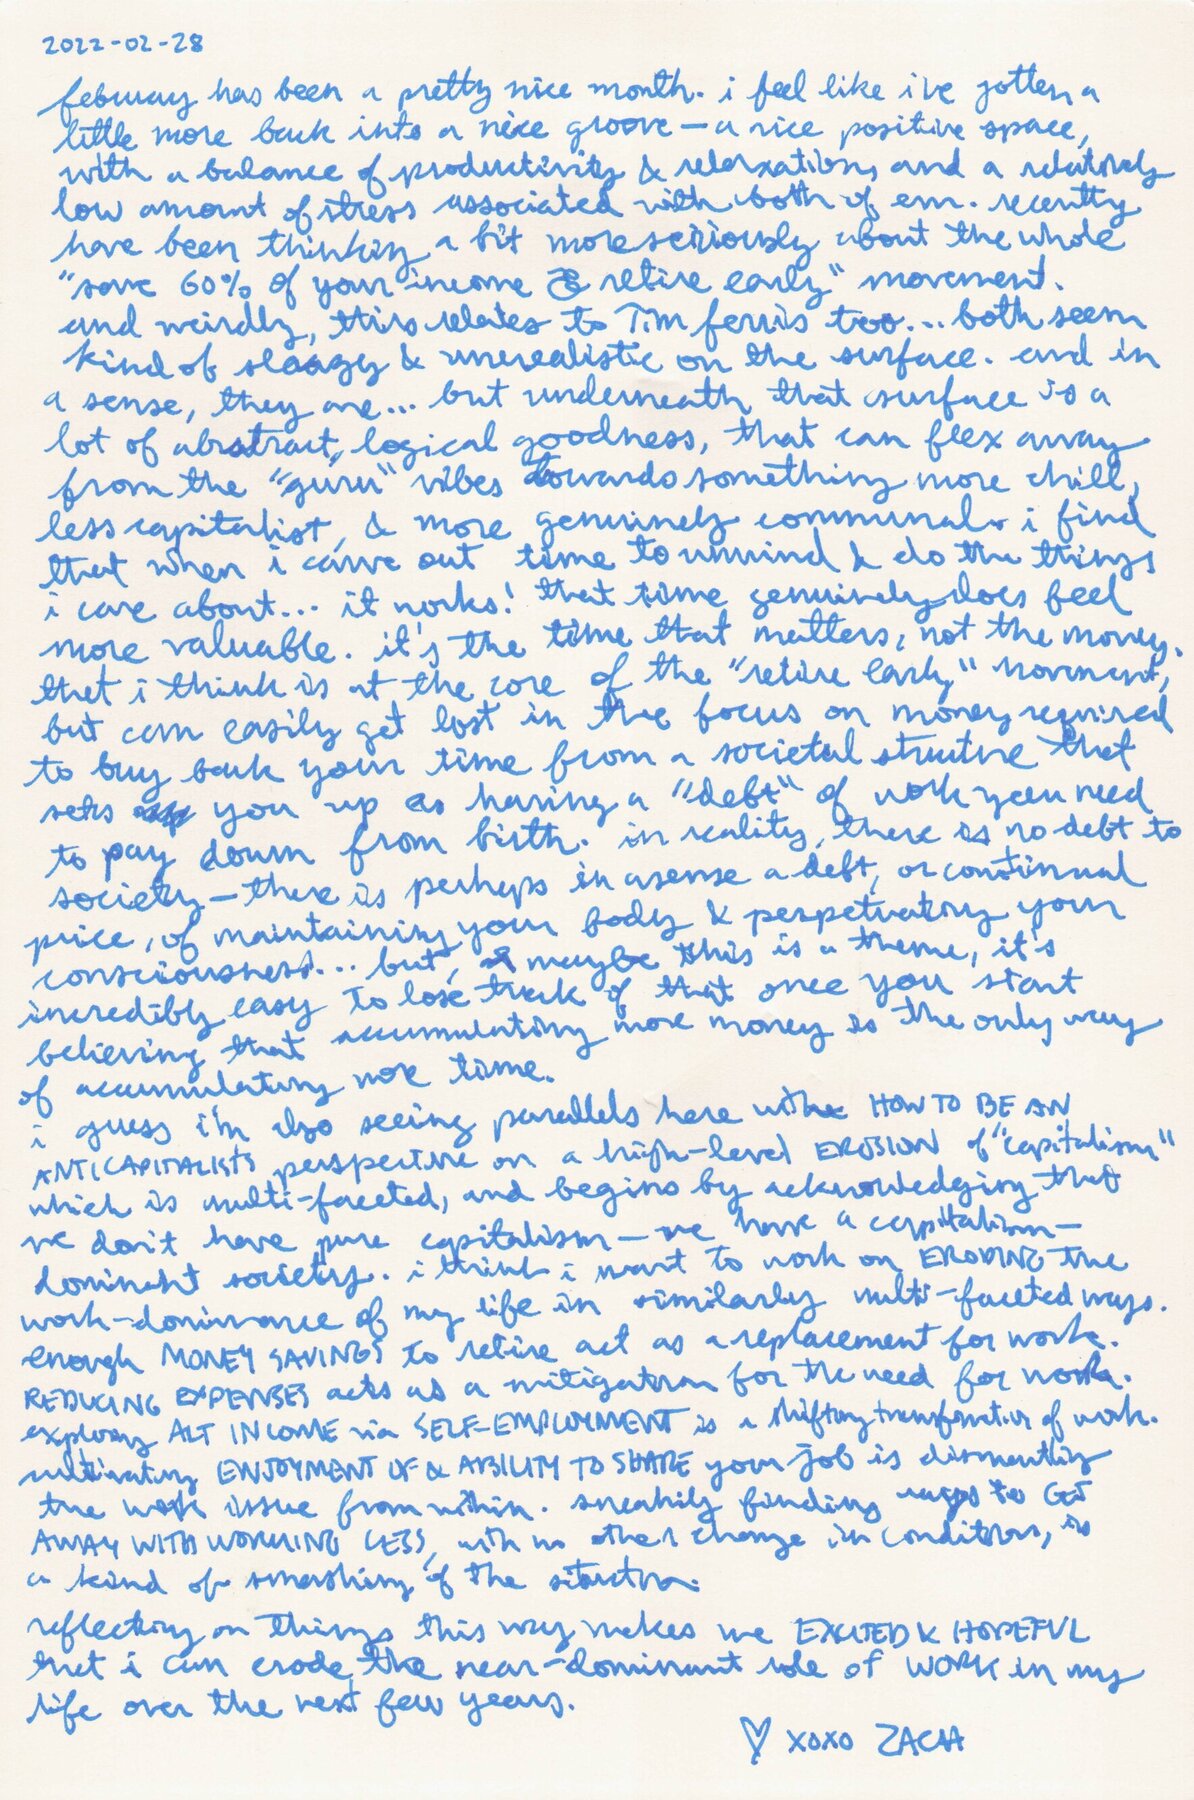 2022-02-28
february has been a pretty nice month. i feel like i've gotten a
little more back into a nice groove — a nice positive space,
with a balance of productivity & relaxation, and a relatively
low amount of stress associated with both of em. recently
have been thinking a bit more seriously about the whole
"save 60% of your income & retire early" movement.
and weirdly, this relates to Tim ferris too... both seem
kind of sleazy & unrealistic on the surface. and in
a sense, they are... but underneath that surface is a
lot of abstract, logical goodness, that can flex away
from the "guru" vibes towards something more chill,
less capitalist, & more genuinely communal. i find
that when i carve out time to unwind & do the things
i care about... it works! that time genuinely does feel
more valuable. it's the time that matters, not the money.
that i think is at the core of the "retire early" movement,
but can easily get lost in the focus on money required
to buy back your time from a societal structure that
sets you up as having a "debt" of work you need
to pay down from birth. in reality, there is no debt to
society — there is perhaps in a sense a debt, or continual
price, of maintaining your body & perpetuating your
consciousness... but, maybe this is a theme, it's
incredibly easy to lose track of that once you start
believing that accumulating more money is the only way
of accumulating more time.
i guess i'm also seeing parallels here with HOW TO BE AN
ANTICAPITALISTS perspective on a high-level EROSION of "capitalism"
which is multi-faceted, and begins by acknowledging that
we don't have pure capitalism — we have a capitalism-
dominant society. i think i want to work on ERODING the
work-dominance of my life in similarly multi-faceted ways.
enough MONEY SAVINGS to retire act as a replacement for work.
REDUCING EXPENSES acts as a mitigation for the need for work.
exploring ALT INCOME via SELF-EMPLOYMENT is a shifting transformation of work.
cultivating ENJOYMENT OF & ABILITY TO SHARE your job is dismantling
the work issue from within. sneakily finding ways to GET
AWAY WITH WORKING LESS, with no other change in conditions, is
a kind of smashing of the situation.
reflecting on things this way makes me EXCITED & HOPEFUL
that i can erode the near-dominant role of WORK in my
life over the next few years.
♡ XOXO ZACH